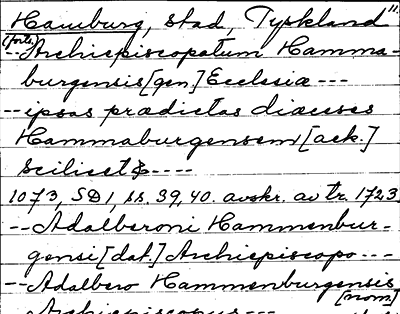 Hamburg, stad, Tyskland"
(forts.)
-- Archiepiscopatum Hamma-
burgensis [gen] Ecclesiæ ---
-- ipsas prædictas diæceses
Hammaburgensem [ack.]
scilicet & ----
1073, SD1, ss. 39, 40. avskr. av tr. 1723
-- Adalberoni Hammenbur-
gensi [dat.] Archiepiscopo ---
-- Adalbero Hammenburgensis
[nom]
Archiepiscopus ---